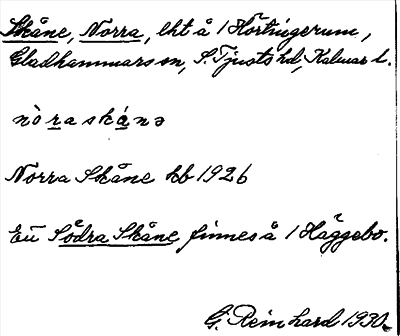 Skåne, Norra, lht å 1 Hörtingerum,
Gladhammars sn, S. Tjusts hd, Kalmar l.
nò ra skánə
Norra Skåne kb 1926
Ett Södra Skåne finnes å 1 Häggebo.
G. Reinhard 1930.